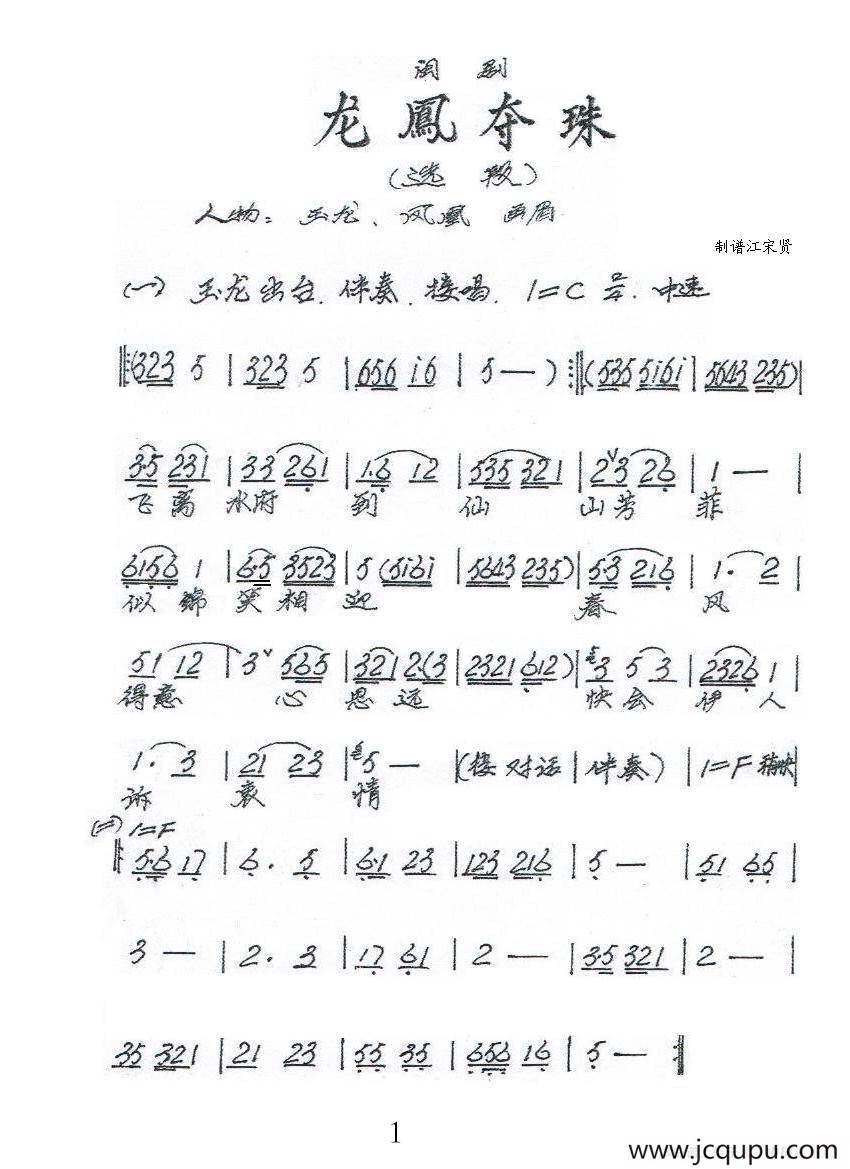 闽剧
龙鳳夺珠
(选段)
人物：玉龙、凤凰 画眉
制谱江宋贤
(一) 玉龙出台.伴奏.接唱. 1=C 2/4 中速
‖:(323 5 | 323 5 | 656 i6 | 5 — ) :‖(535 5i6i | 5643 235) |
3·5 231 | 33 261 | 1·6 12 | 535 321 | 2ˇ3 26 | 1 — |
飞离 水府 到 仙 山芳 菲
6156 1 | 6·5 3523 | 5 (5i6i | 5643 235) | 5·3 216 | 1· 2 |
似锦 笑相 迎 春 风
51 12 | 3ˇ 565 | 321 2·(3 | 2321 612) | 3 5 3 | 2326 1 |
得意 心 思 远 快会 伊人
1· 3 | 21 23 | 5 — | (接对话 | 伴奏) | 1=F 稍快 |
诉 衷 情
(二) 1=F
‖: 5·6 17 | 6· 5 | 6·1 23 | 123 216 | 5 — | 51 65 |
3 — | 2· 3 | 17 61 | 2 — | 3·5 321 | 2 — |
35 321 | 21 23 | 55 35 | 656 16 | 5 — :‖
1
www.jcqupu.com